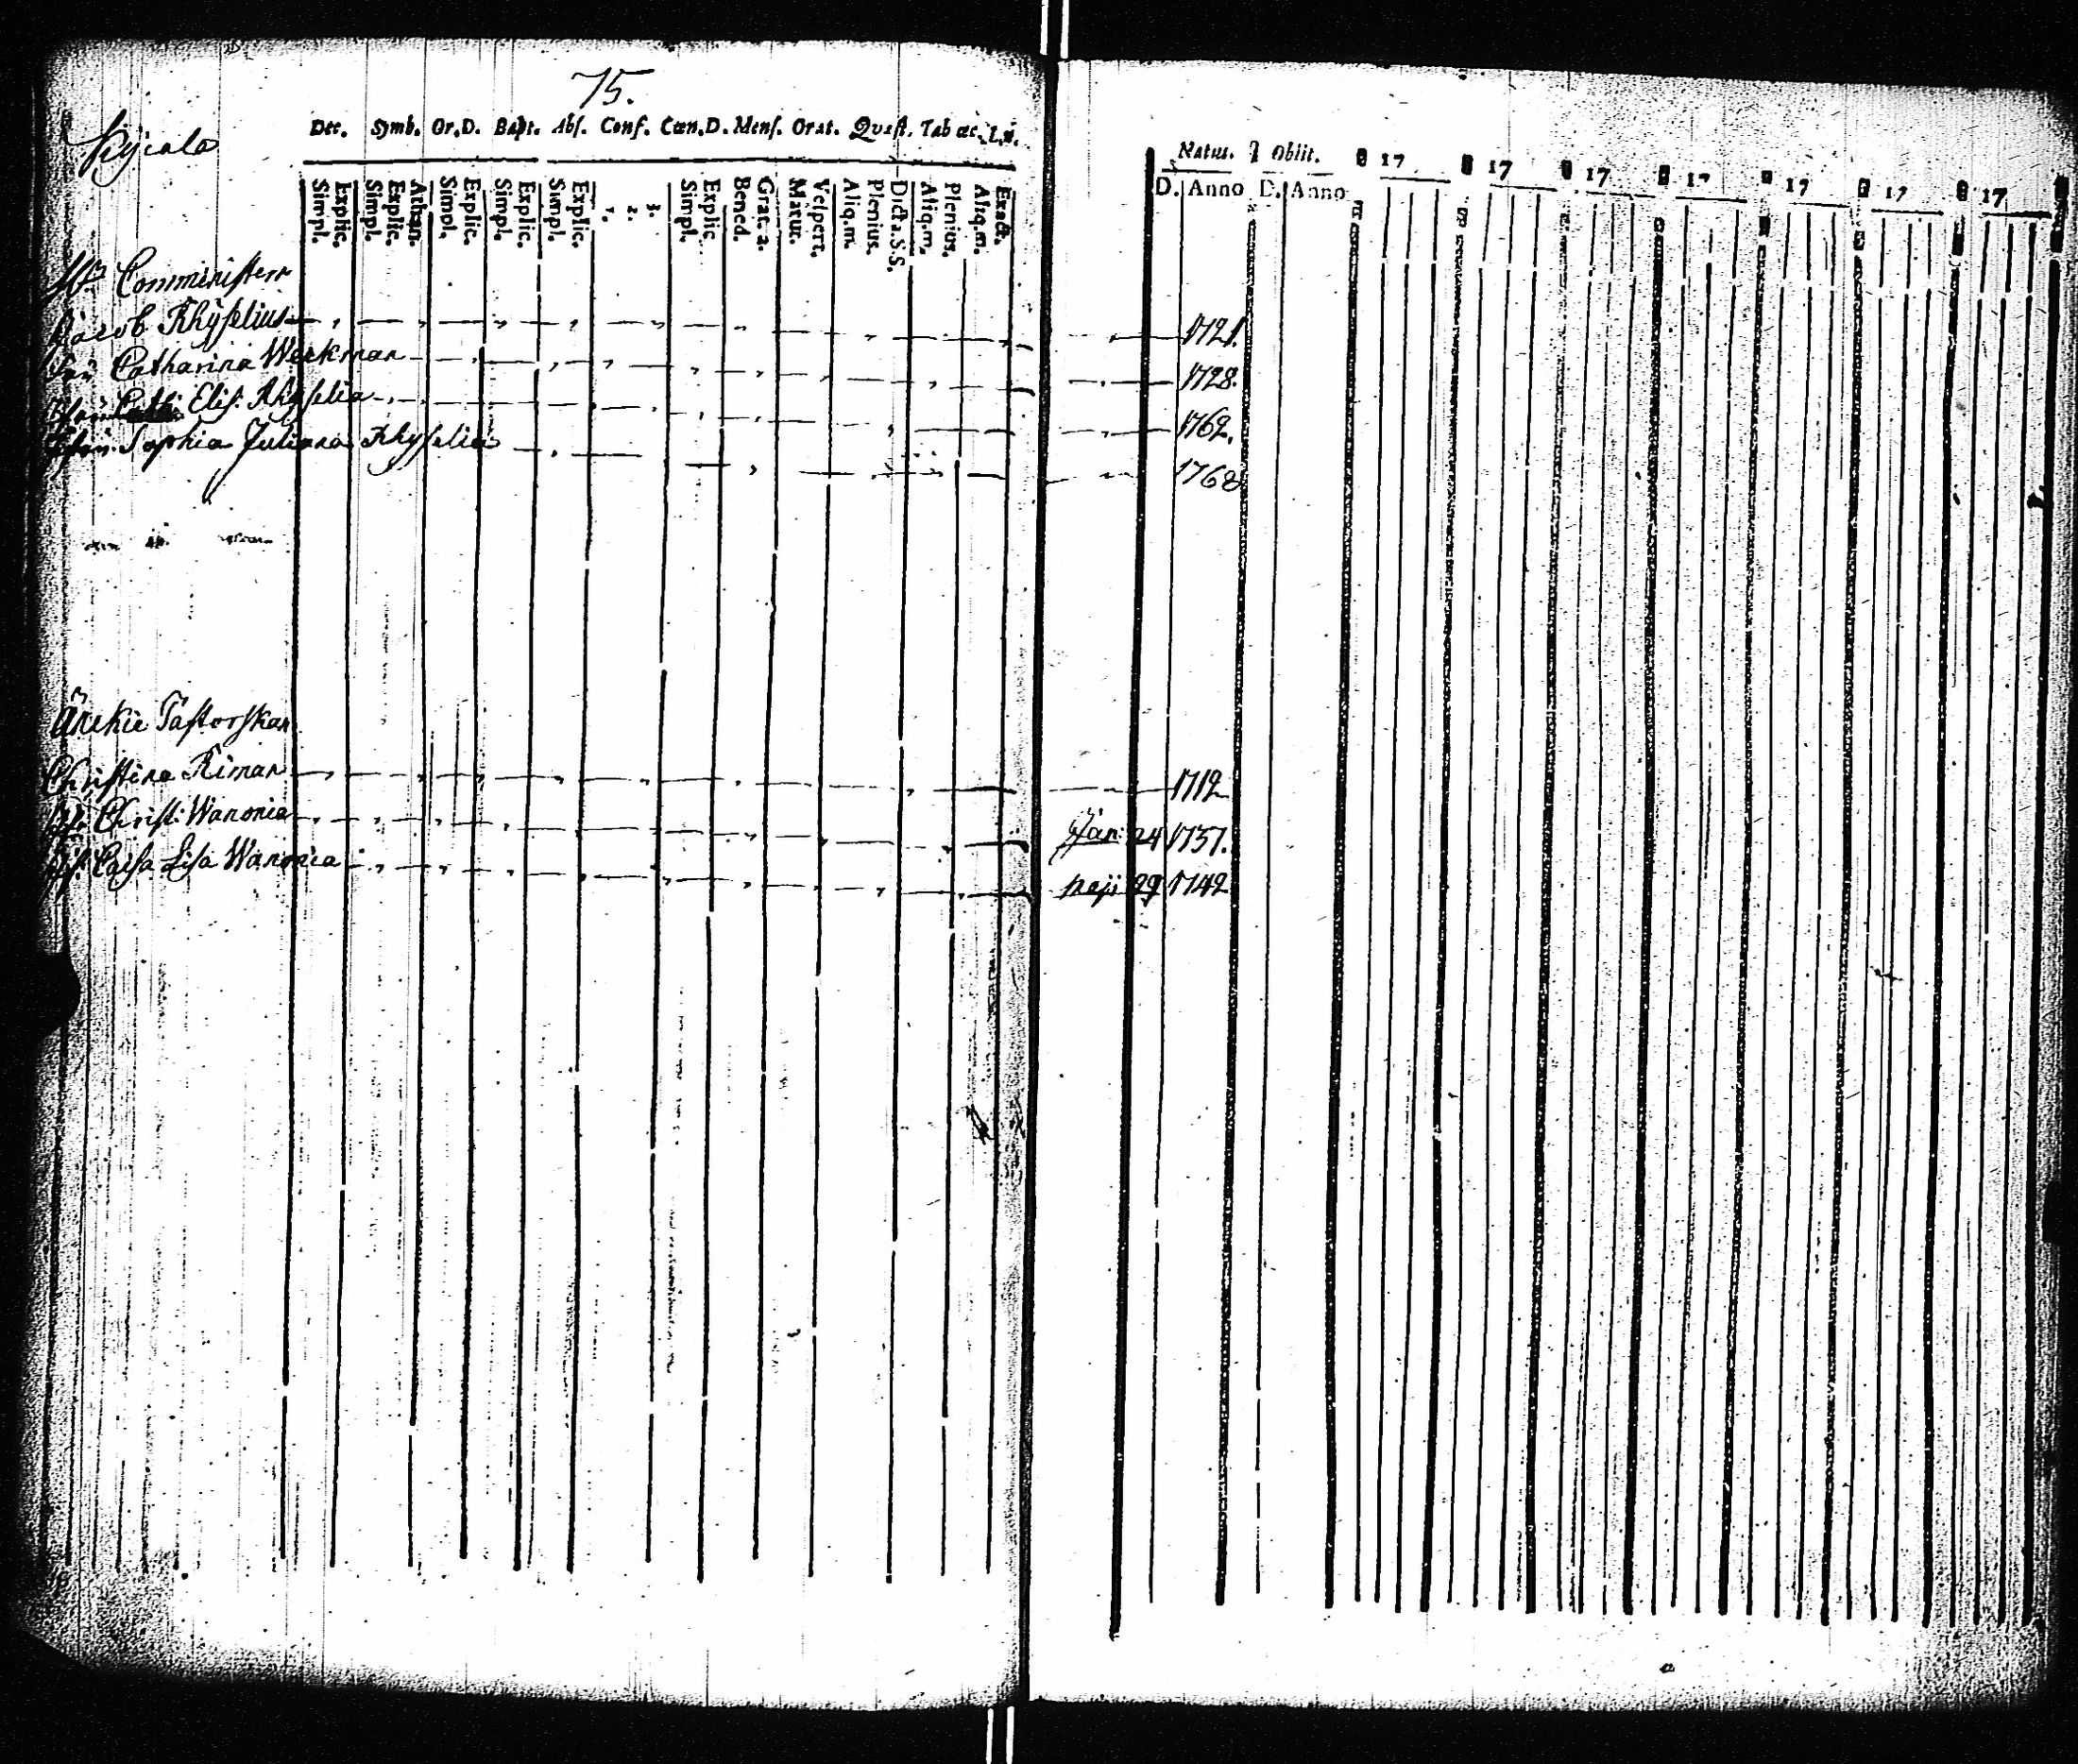 75.
Kyiala
Dec. Symb. Or.D. Bapt. Abs. Conf. Cœn.D. Mens. Orat. Quæst. Tab œc. L.n.
Simpl. Explic. Simpl. Explic. Athan. Simpl. Explic. Simpl. Explic. Simpl. Explic. 1. 2. 3. Simpl. Explic. Bened. Grat. a. Matut. Vespert. Aliq.m. Plenius. Dicta.S.S. Aliq.m. Plenius. Aliq.m. Exact.
Natus. Obiit. 17 17 17 17 17 17 17
D. Anno D. Anno
Comministern
Jacob Rhyselius 1721.
Catharina Weckman 1728.
Elis. Rhyselia 1762.
Sophia Juliana Rhyselia 1768
Änckie Pastorskan
Christina Riman 1712
Christ: Wanonia Jan: 24 1737.
Caisa Lisa Wanonia Maji 29 1742